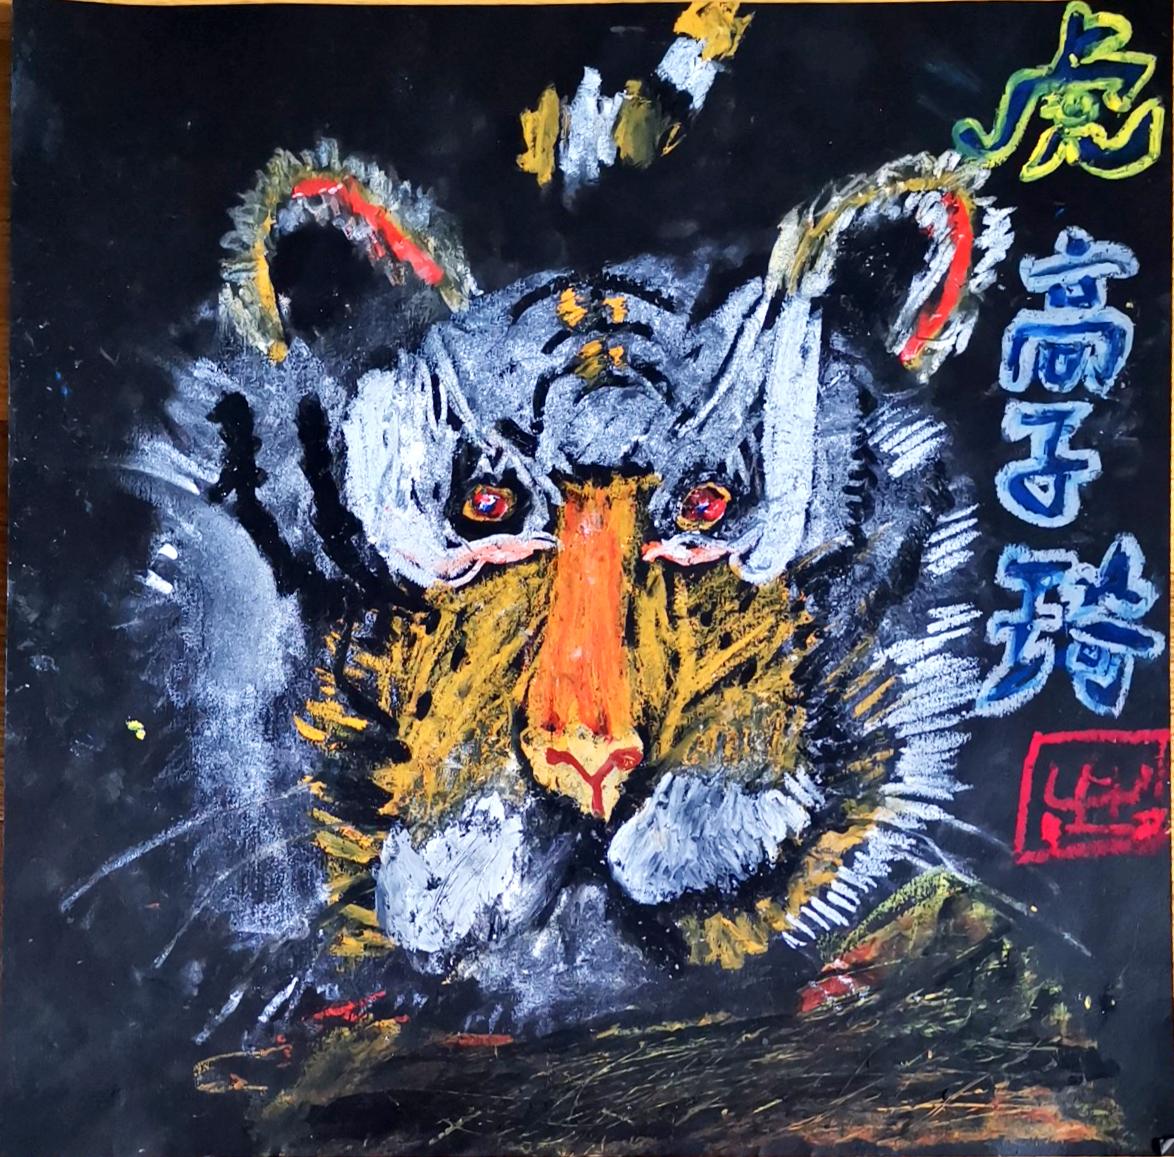 虎
高子琦